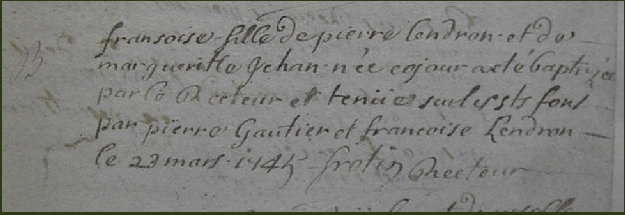 fransoise fille de pierre Lendron et de
margueritte Jehan née ce jour a eté baptisée
par le Recteur et tenüe sur les sts fons
par pierre Gautier et francoise Lendron
le 23 mars 1745 frotin Recteur